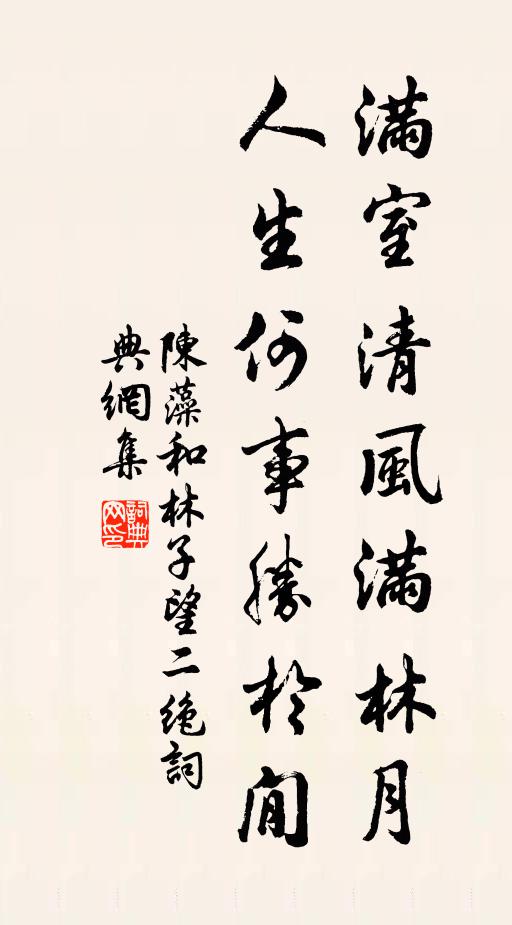 滿室清風滿林月
人生何事勝於閒
陳藻和林子望二絶詞
典網集
詞典網印